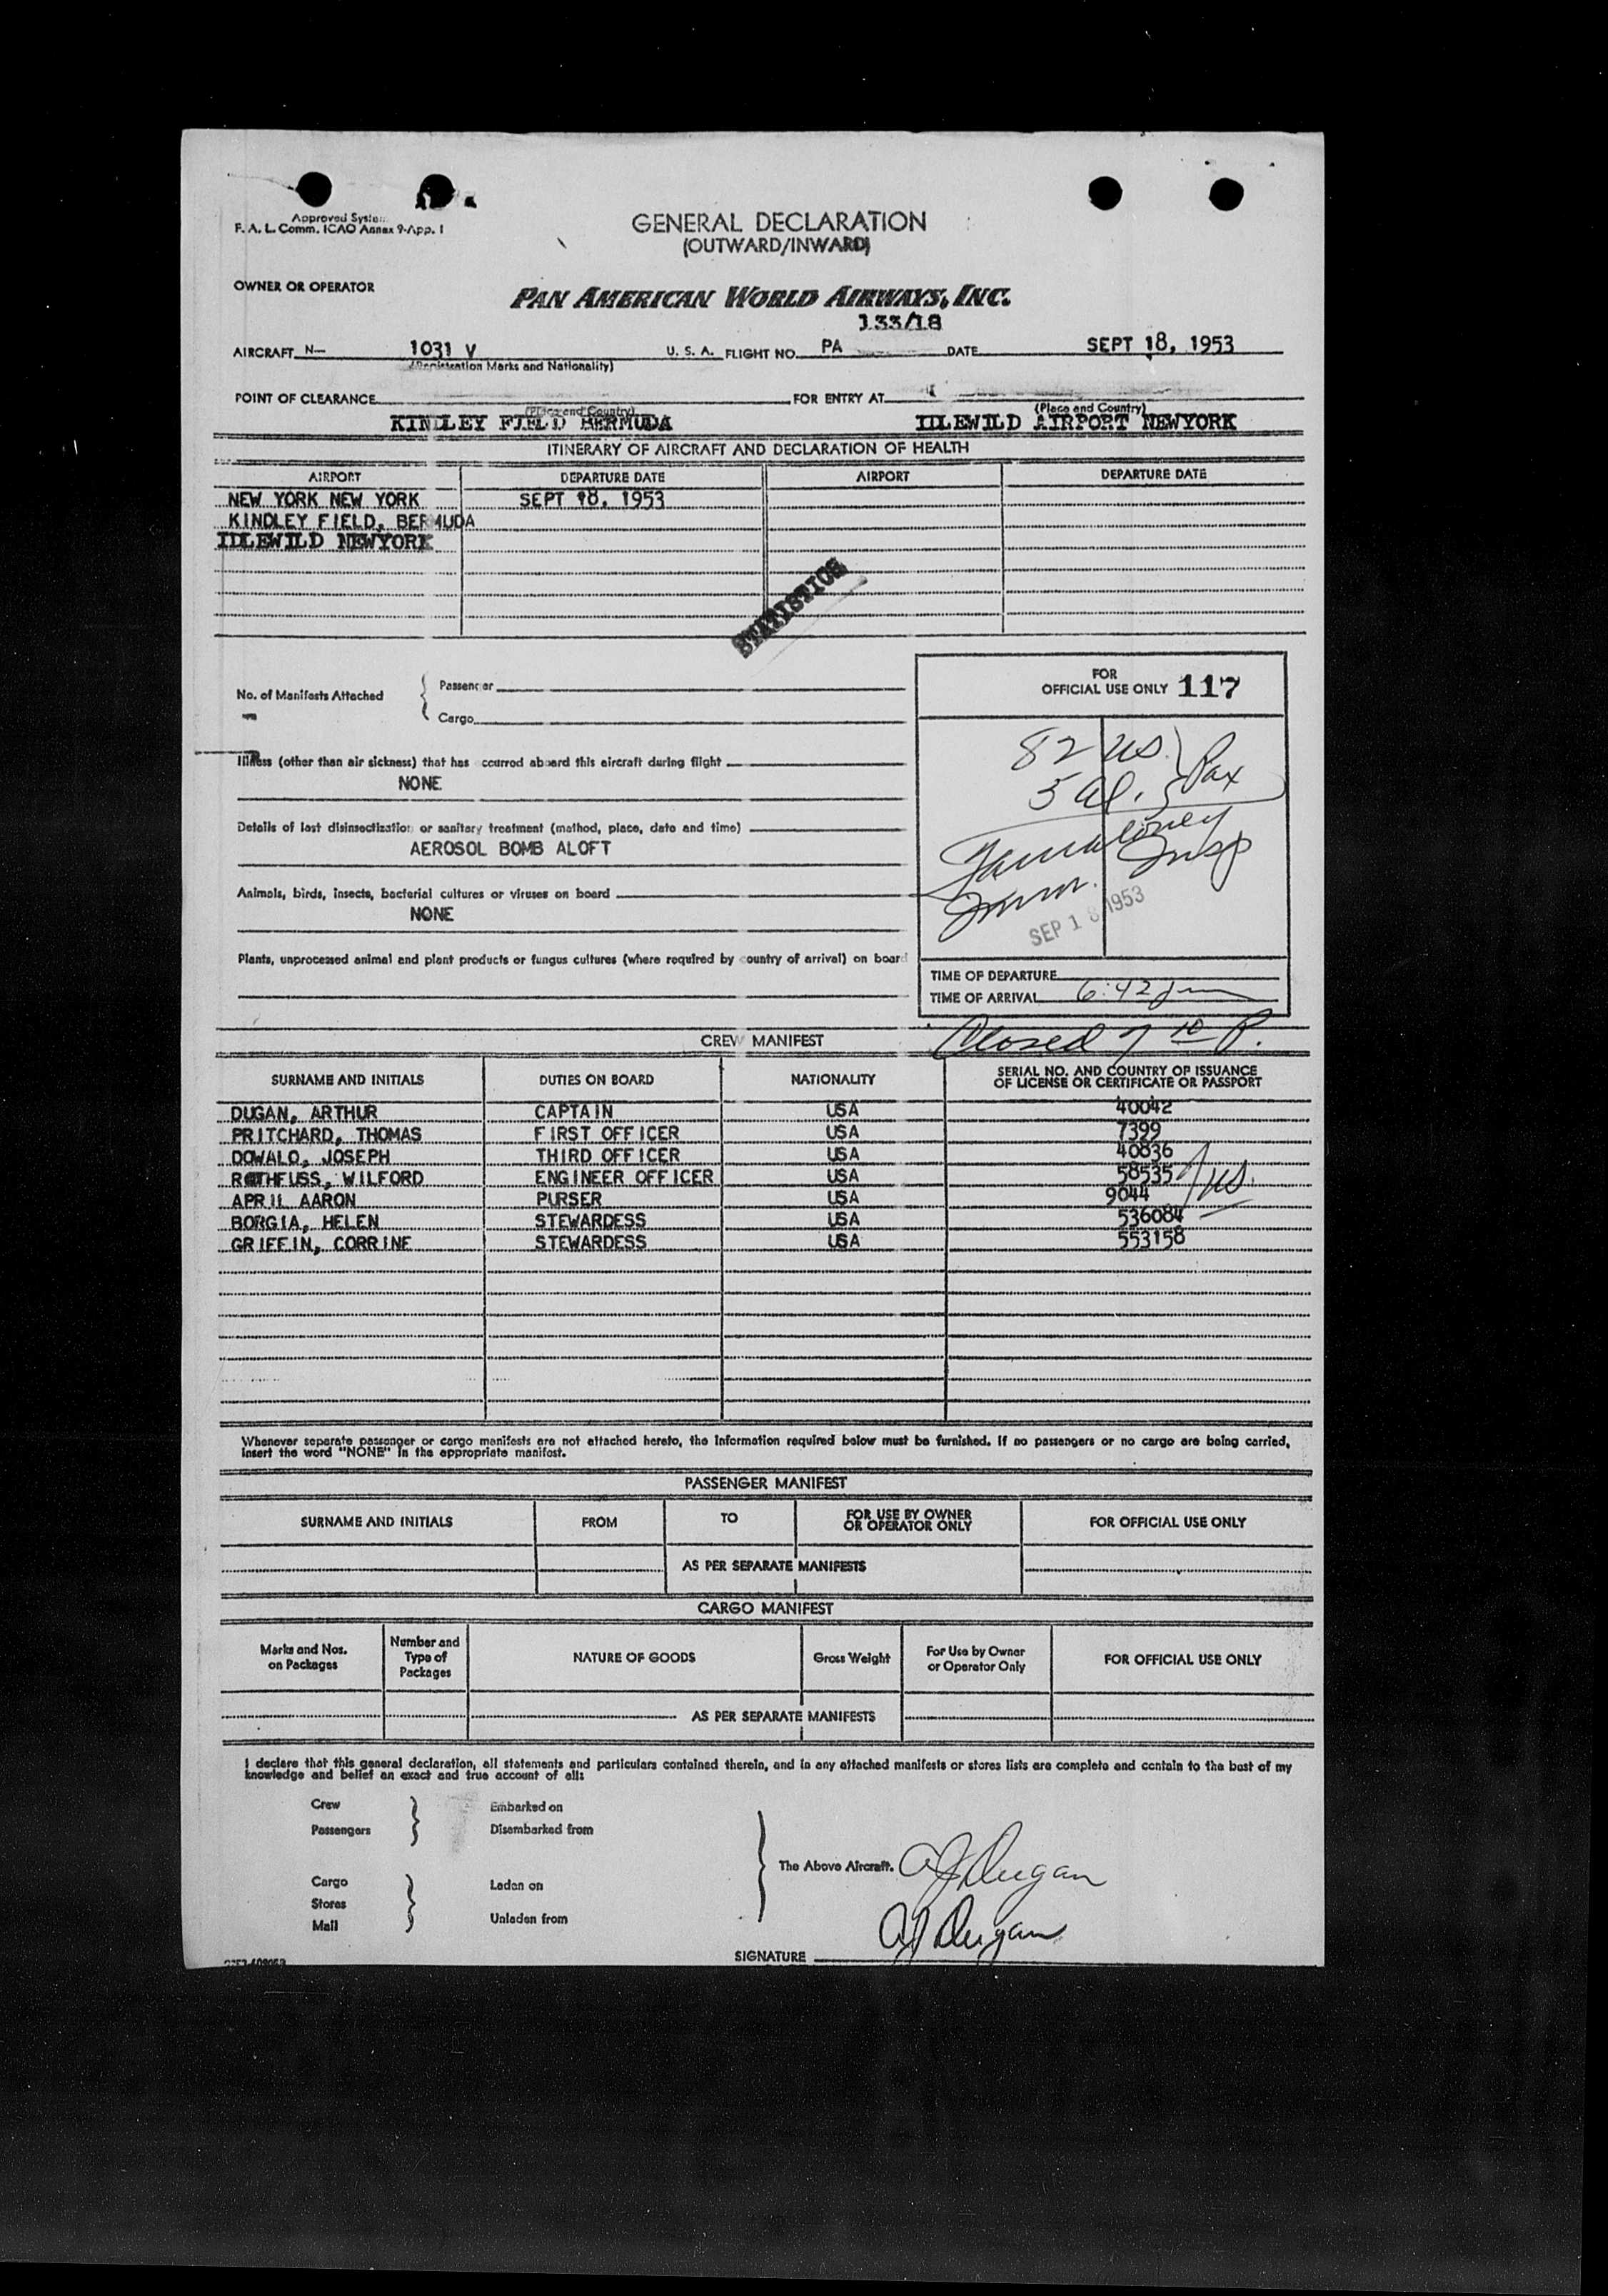 Approved System
F. A. L. Comm. ICAO Annex 9-App. 1
GENERAL DECLARATION
(OUTWARD/INWARD)
OWNER OR OPERATOR
PAN AMERICAN WORLD AIRWAYS, INC.
133/18
AIRCRAFT N— 1031 V U. S. A. FLIGHT NO. PA DATE SEPT 18, 1953
(Registration Marks and Nationality)
POINT OF CLEARANCE FOR ENTRY AT
(Place and Country) (Place and Country)
KINDLEY FIELD BERMUDA IDLEWILD AIRPORT NEWYORK
ITINERARY OF AIRCRAFT AND DECLARATION OF HEALTH
AIRPORT DEPARTURE DATE AIRPORT DEPARTURE DATE
NEW YORK NEW YORK SEPT 18, 1953
KINDLEY FIELD, BERMUDA
IDLEWILD NEWYORK
STATISTICS
No. of Manifests Attached
Passenger
Cargo
FOR
OFFICIAL USE ONLY 117
82 US
5 al. Pax
Immr. Insp
SEP 18 1953
Illness (other than air sickness) that has occurred aboard this aircraft during flight
NONE
Details of last disinsectization or sanitary treatment (method, place, date and time)
AEROSOL BOMB ALOFT
Animals, birds, insects, bacterial cultures or viruses on board
NONE
Plants, unprocessed animal and plant products or fungus cultures (where required by country of arrival) on board
TIME OF DEPARTURE
TIME OF ARRIVAL 6:42 pm
Closed 7 10 P.
CREW MANIFEST
SURNAME AND INITIALS DUTIES ON BOARD NATIONALITY SERIAL NO. AND COUNTRY OF ISSUANCE OF LICENSE OR CERTIFICATE OR PASSPORT
DUGAN, ARTHUR CAPTAIN USA 40042
PRITCHARD, THOMAS FIRST OFFICER USA 7399
DOWALO, JOSEPH THIRD OFFICER USA 40836
ROTHFUSS, WILFORD ENGINEER OFFICER USA 58535
APRIL AARON PURSER USA 9044
BORGIA, HELEN STEWARDESS USA 536084
GRIFFIN, CORRINE STEWARDESS USA 553158
7 US.
Whenever separate passenger or cargo manifests are not attached hereto, the information required below must be furnished. If no passengers or no cargo are being carried,
insert the word "NONE" in the appropriate manifest.
PASSENGER MANIFEST
SURNAME AND INITIALS FROM TO FOR USE BY OWNER OR OPERATOR ONLY FOR OFFICIAL USE ONLY
AS PER SEPARATE MANIFESTS
CARGO MANIFEST
Marks and Nos. on Packages Number and Type of Packages NATURE OF GOODS Gross Weight For Use by Owner or Operator Only FOR OFFICIAL USE ONLY
AS PER SEPARATE MANIFESTS
I declare that this general declaration, all statements and particulars contained therein, and in any attached manifests or stores lists are complete and contain to the best of my
knowledge and belief an exact and true account of all:
Crew Embarked on
Passengers Disembarked from
The Above Aircraft. AJ Dugan
Cargo Laden on
Stores
Mail Unladen from
AJ Dugan
SIGNATURE